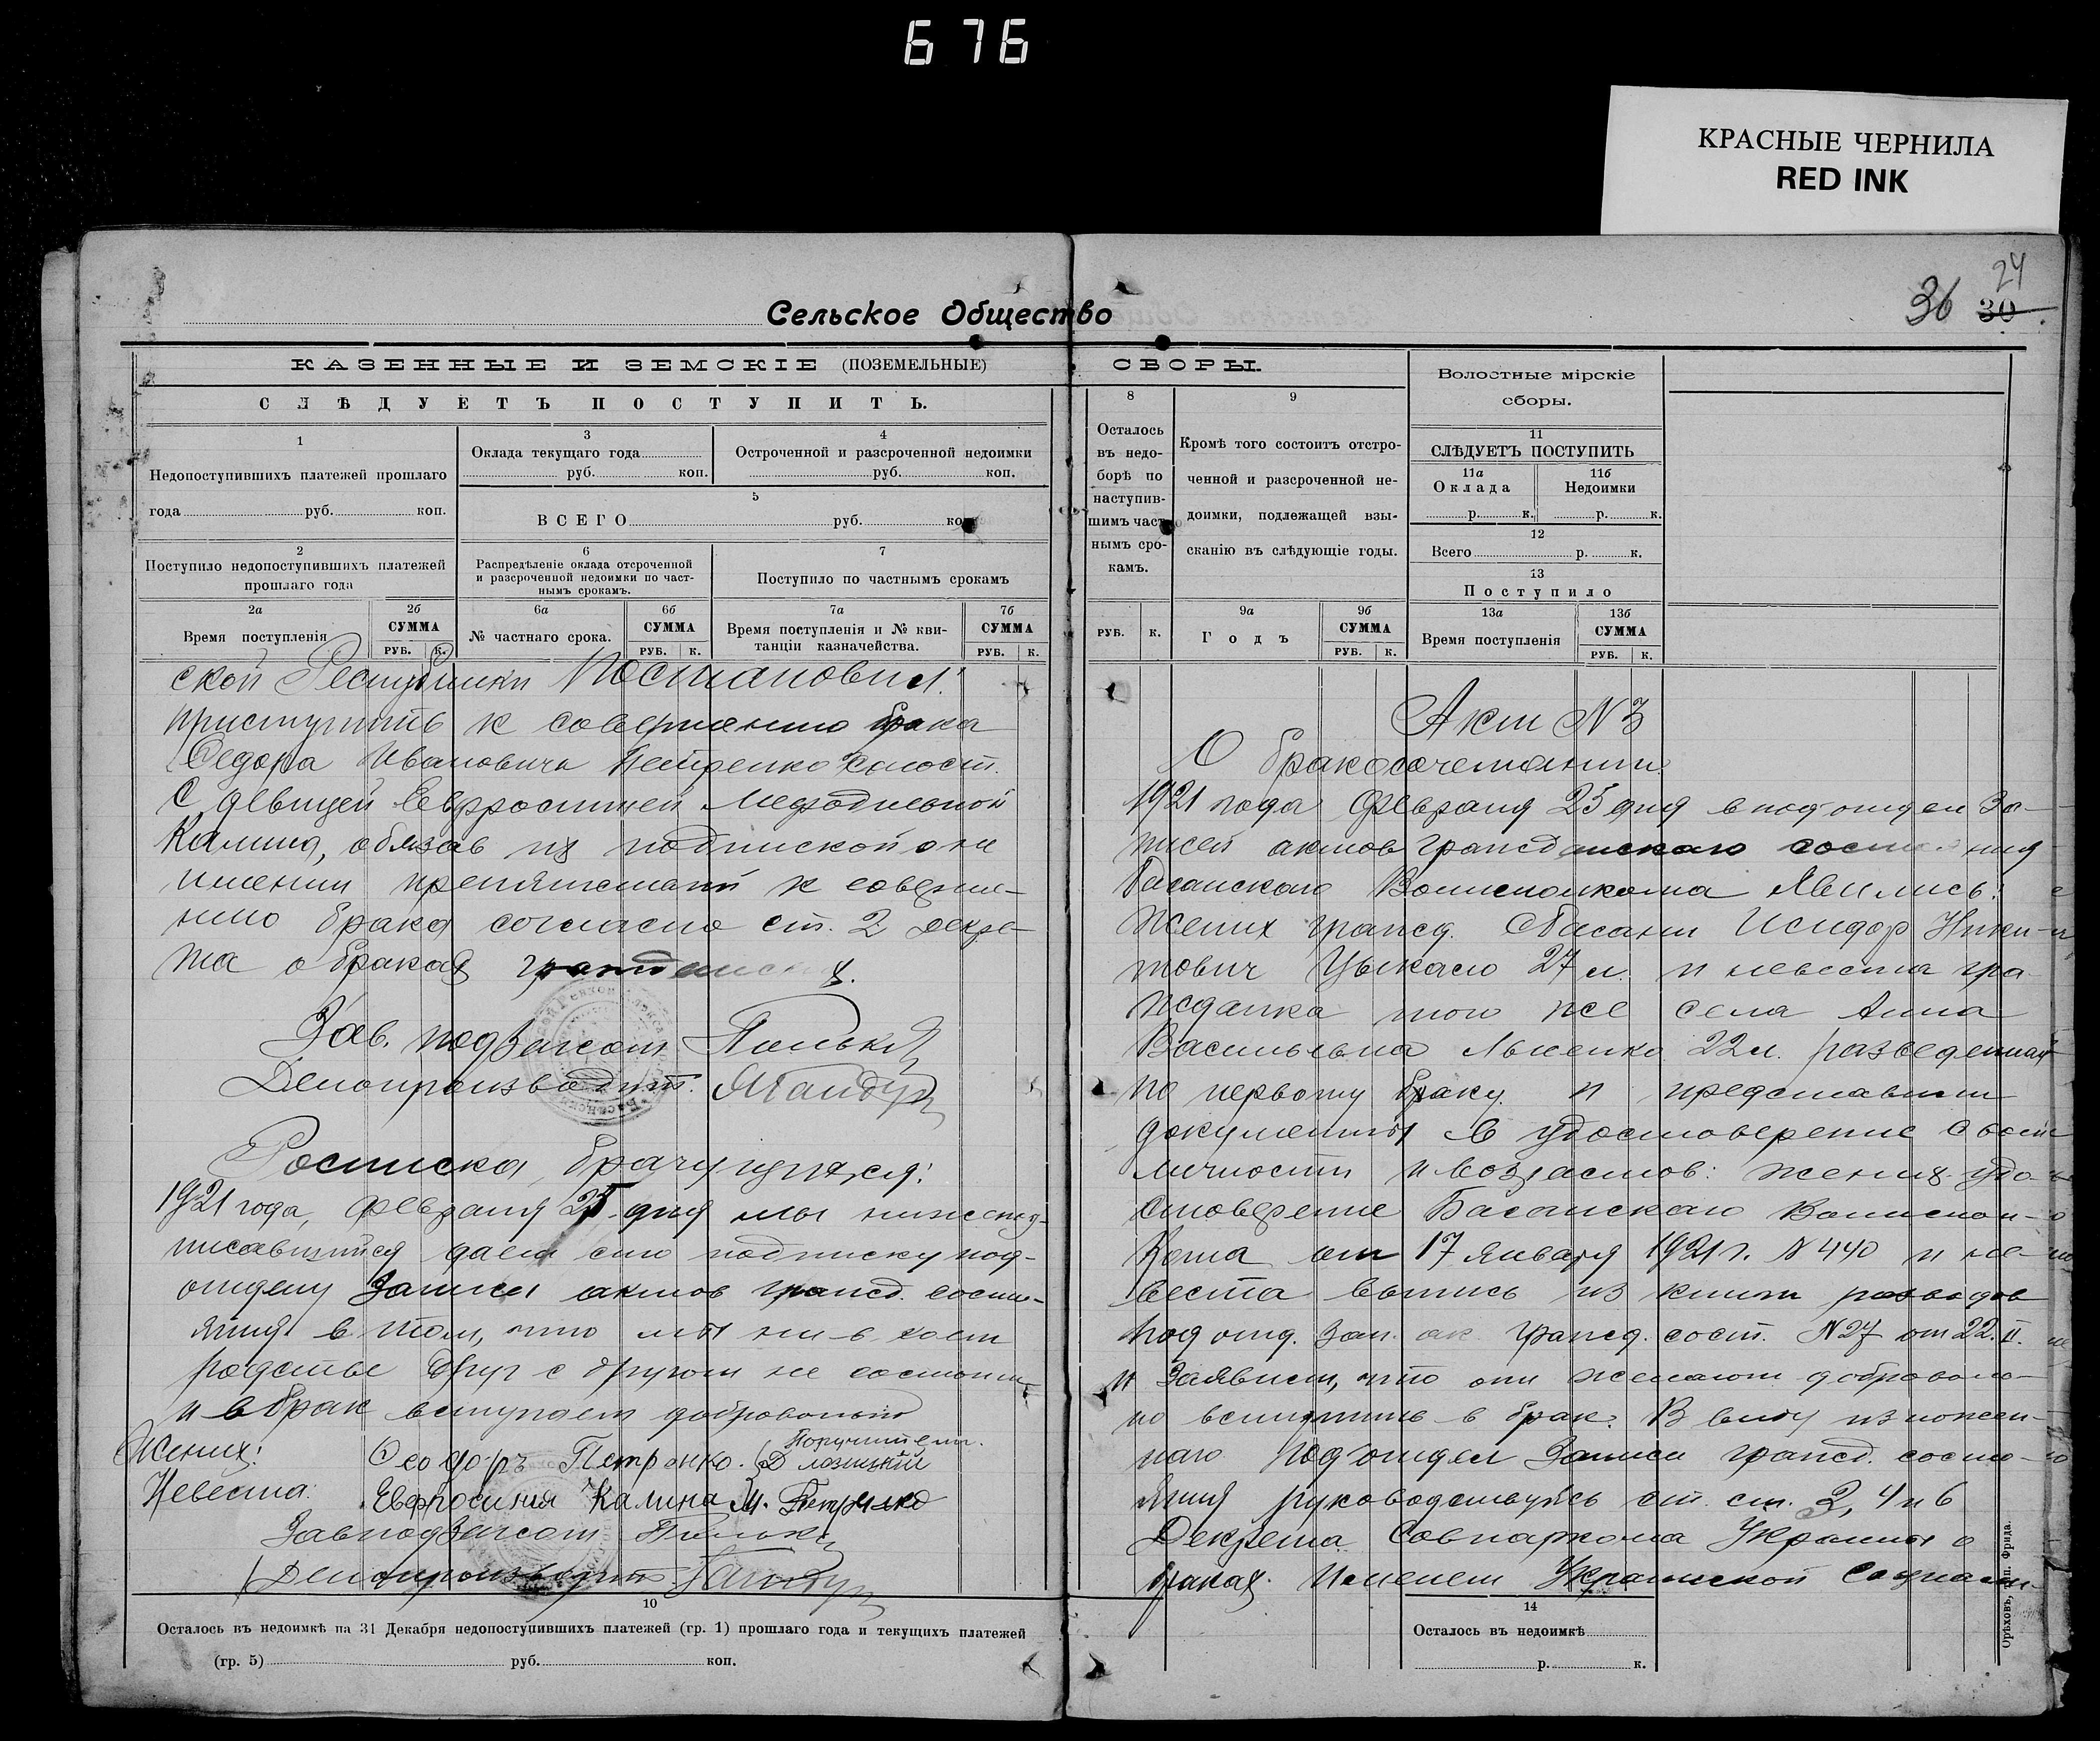 676
КРАСНЫЕ ЧЕРНИЛА
RED INK
24
36 30
Сельское Общество
КАЗЕННЫЕ И ЗЕМСКІЕ (ПОЗЕМЕЛЬНЫЕ)
СЛѢДУЕТЪ ПОСТУПИТЬ.
1
Недопоступившихъ платежей прошлаго
года руб. коп.
3
Оклада текущаго года
руб. коп.
4
Остроченной и разсроченной недоимки
руб. коп.
5
ВСЕГО руб. коп.
2
Поступило недопоступившихъ платежей
прошлаго года
6
Распредѣленіе оклада отсроченной
и разсроченной недоимки по част-
нымъ срокамъ.
7
Поступило по частнымъ срокамъ
2а
Время поступленія
2б
СУММА
РУБ. К.
6а
№ частнаго срока.
6б
СУММА
РУБ. К.
7а
Время поступленія и № кви-
танціи казначейства.
7б
СУММА
РУБ. К.
ской Республики Постановил:
приступить к совершению брака
Федора Ивановича Петренко холост.
с девицей Евфросинией Мефодиевной
Калина, обязав их подпиской о не
имении препятствий к соверше-
нию брака согласно ст. 2 декре-
та о браках гражданских.
Зав. подзагсом
Делопроизводит.
Росписка брачующихся:
1921 года, февраля 25 дня мы нижепод-
писавшийся даем сию подписку под-
отделу Записи актов гражд. состо-
яния в том, что мы ни в коем
родстве друг с другом не состоим
и в брак вступаем добровольно
Жених: Феодоръ Петренко. Поручители.
Д Лозицкий
Невеста: Евфросиния Калина М. Петренко
Завподзагсом
Делопроизводит
10
Осталось въ недоимкѣ на 31 Декабря недопоступившихъ платежей (гр. 1) прошлаго года и текущихъ платежей
(гр. 5) руб. коп.
СБОРЫ.
8
Осталось
въ недо-
борѣ по
наступив-
шимъ част-
нымъ сро-
камъ.
РУБ. К.
9
Кромѣ того состоитъ отстро-
ченной и разсроченной не-
доимки, подлежащей взы-
сканію въ слѣдующіе годы.
9а
Годъ
9б
СУММА
РУБ. К.
Волостные мірскіе
сборы.
11
СЛѢДУЕТЪ ПОСТУПИТЬ
11а
Оклада
р. к.
11б
Недоимки
р. к.
12
Всего р. к.
13
Поступило
13а
Время поступленія
13б
СУММА
РУБ. К.
Акт N 3
О бракосочетании.
1921 года февраля 25 дня в подотдел За-
писей актов гражданского состояния
Басанского Волисполкома Явились:
Жених гражд. с Басани Исидор Ники-
тович Цыкало 27 л. и невеста гра-
жданка того же села Анна
Васильевна Льненко 22 л. разведенная
по первому браку и представили
документы в удостоверение своей
личности и возрастов: жених удо-
стоверение Басанского Волисполко-
кома от 17 января 1921 г. N 440 и не-
веста выпись из книги разводов
подотд. зап. ак. гражд. сост. N27 от 22. II.
и Заявили, что они желают доброволь-
но вступить в брак. В виду изложен-
ного Подотдел Записи гражд. состо-
яния руководствуясь ст. ст. 2, 4 и 6
Декрета Совнаркома Украины о
браках. Именем Украинской Социали-
14
Осталось въ недоимкѣ
р. к.
Орѣховъ, тип. Фрида.